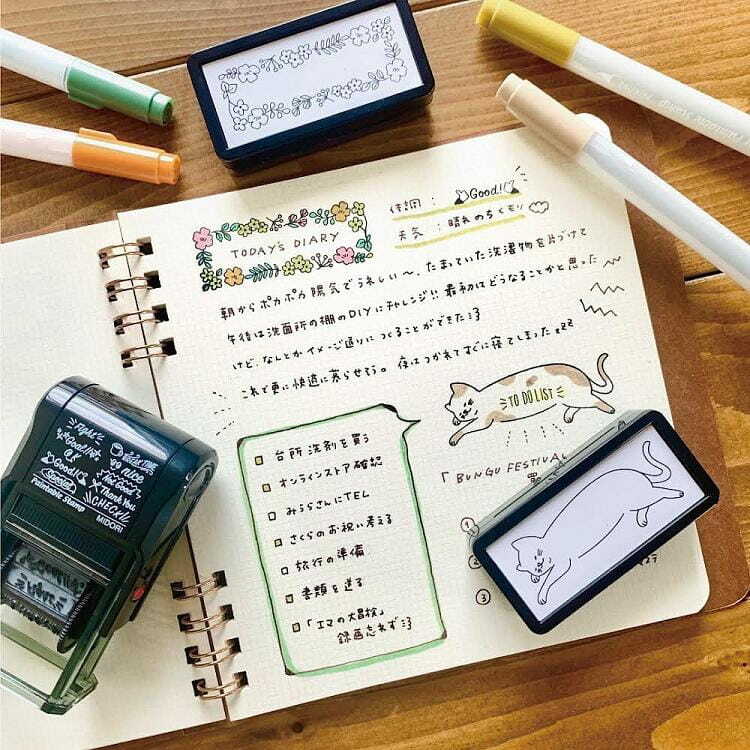 TODAY'S DIARY
体調 : Good!
天気 : 晴れのちくもり
朝からポカポカ陽気でうれしい〜。たまっていた洗濯物を片づけて
午後は洗面所の棚のDIYにチャレンジ!! 最初はどうなることかと思った
けど、なんとかイメージ通りにつくることができた
これで更に快適に暮らせそう。夜はつかれてすぐに寝てしまった zzz
TO DO LIST
台所洗剤を買う
オンラインストア確認
みうらさんにTEL
さくらのお祝い考える
旅行の準備
書類を送る
「エマの大冒険」
録画忘れず
「BUNGU FESTIVAL
①
②
③
Fight
Good luck
Good!
Nice
Not Good
Thank You
CHECK!!
Special
Paintable Stamp
MIDORI